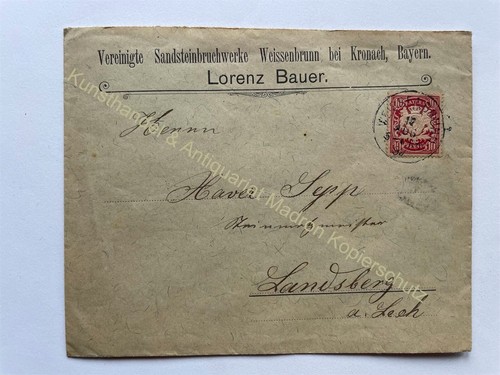 Vereinigte Sandsteinbruchwerke Weissenbrunn bei Kronach, Bayern.
Lorenz Bauer.
Herrn
Xaver Sepp
Steinmetzmeister
Landsberg
a. Lech
Kunsthandel & Antiquariat Madrian Kopierschutz